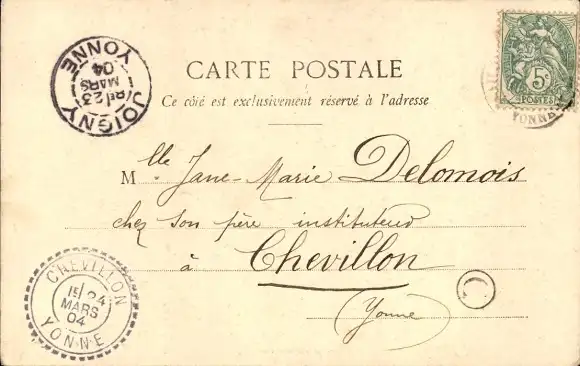 CARTE POSTALE
Ce côté est exclusivement réservé à l'adresse
Mlle Jane-Marie Delomois
chez son père instituteur
à Chevillon
(Yonne)
C
JOIGNY
YONNE
23
MARS
04
5c
POSTES
YONNE
CHEVILLON
15/24
MARS
04
YONNE